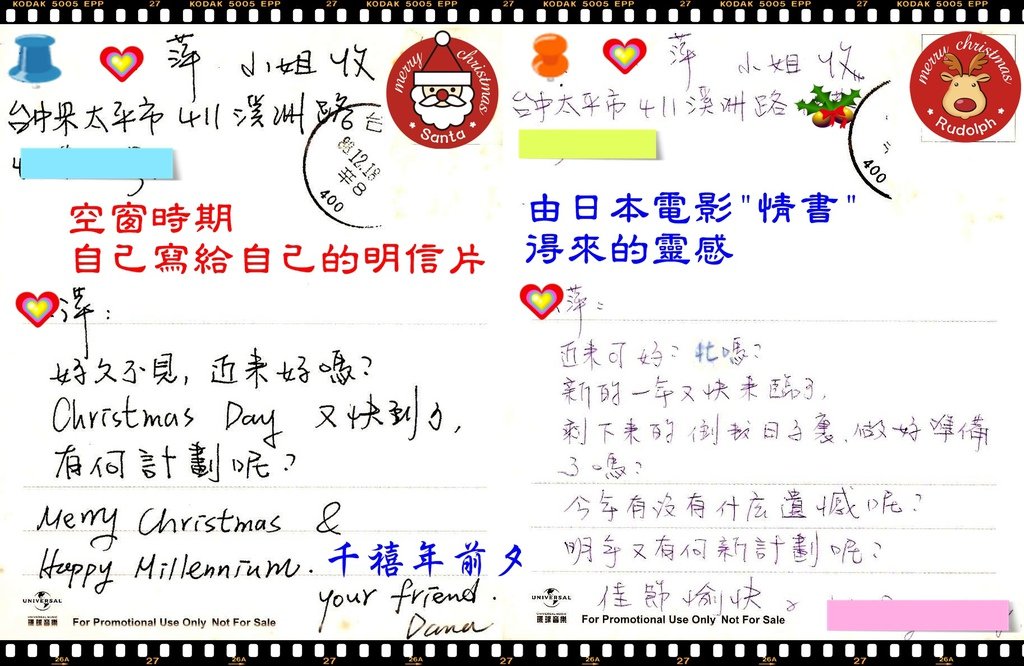 KODAK 5005 EPP KODAK 5005 EPP KODAK 5005 EPP KODAK 5005 EPP KODAK 5005 EPP KODAK 5005 EPP
萍 小姐 收
merry christmas
Santa
台中県太平市 411 溪洲路
台
88.12.18
辛8
400
空窗時期
自己寫給自己的明信片
萍：
好久不見，近来好嗎？
Christmas Day 又快到了，
有何計劃呢？
Merry Christmas &
Happy Millennium.
千禧年前夕
your friend.
Dana
UNIVERSAL
環球音樂
For Promotional Use Only Not For Sale
萍 小姐 收
merry christmas
Rudolph
台中太平市 411 溪洲路
400
由日本電影"情書"
得來的靈感
萍：
近来可好？忙嗎？
新的一年又快来臨了，
剩下来的倒数日子裏，做好準備
了嗎？
今年有没有什広遺憾呢？
明年又有何新計劃呢？
佳節愉快
UNIVERSAL
環球音樂
For Promotional Use Only Not For Sale
26A 27 26A 27 26A 27 26A 27 26A 27 26A 27